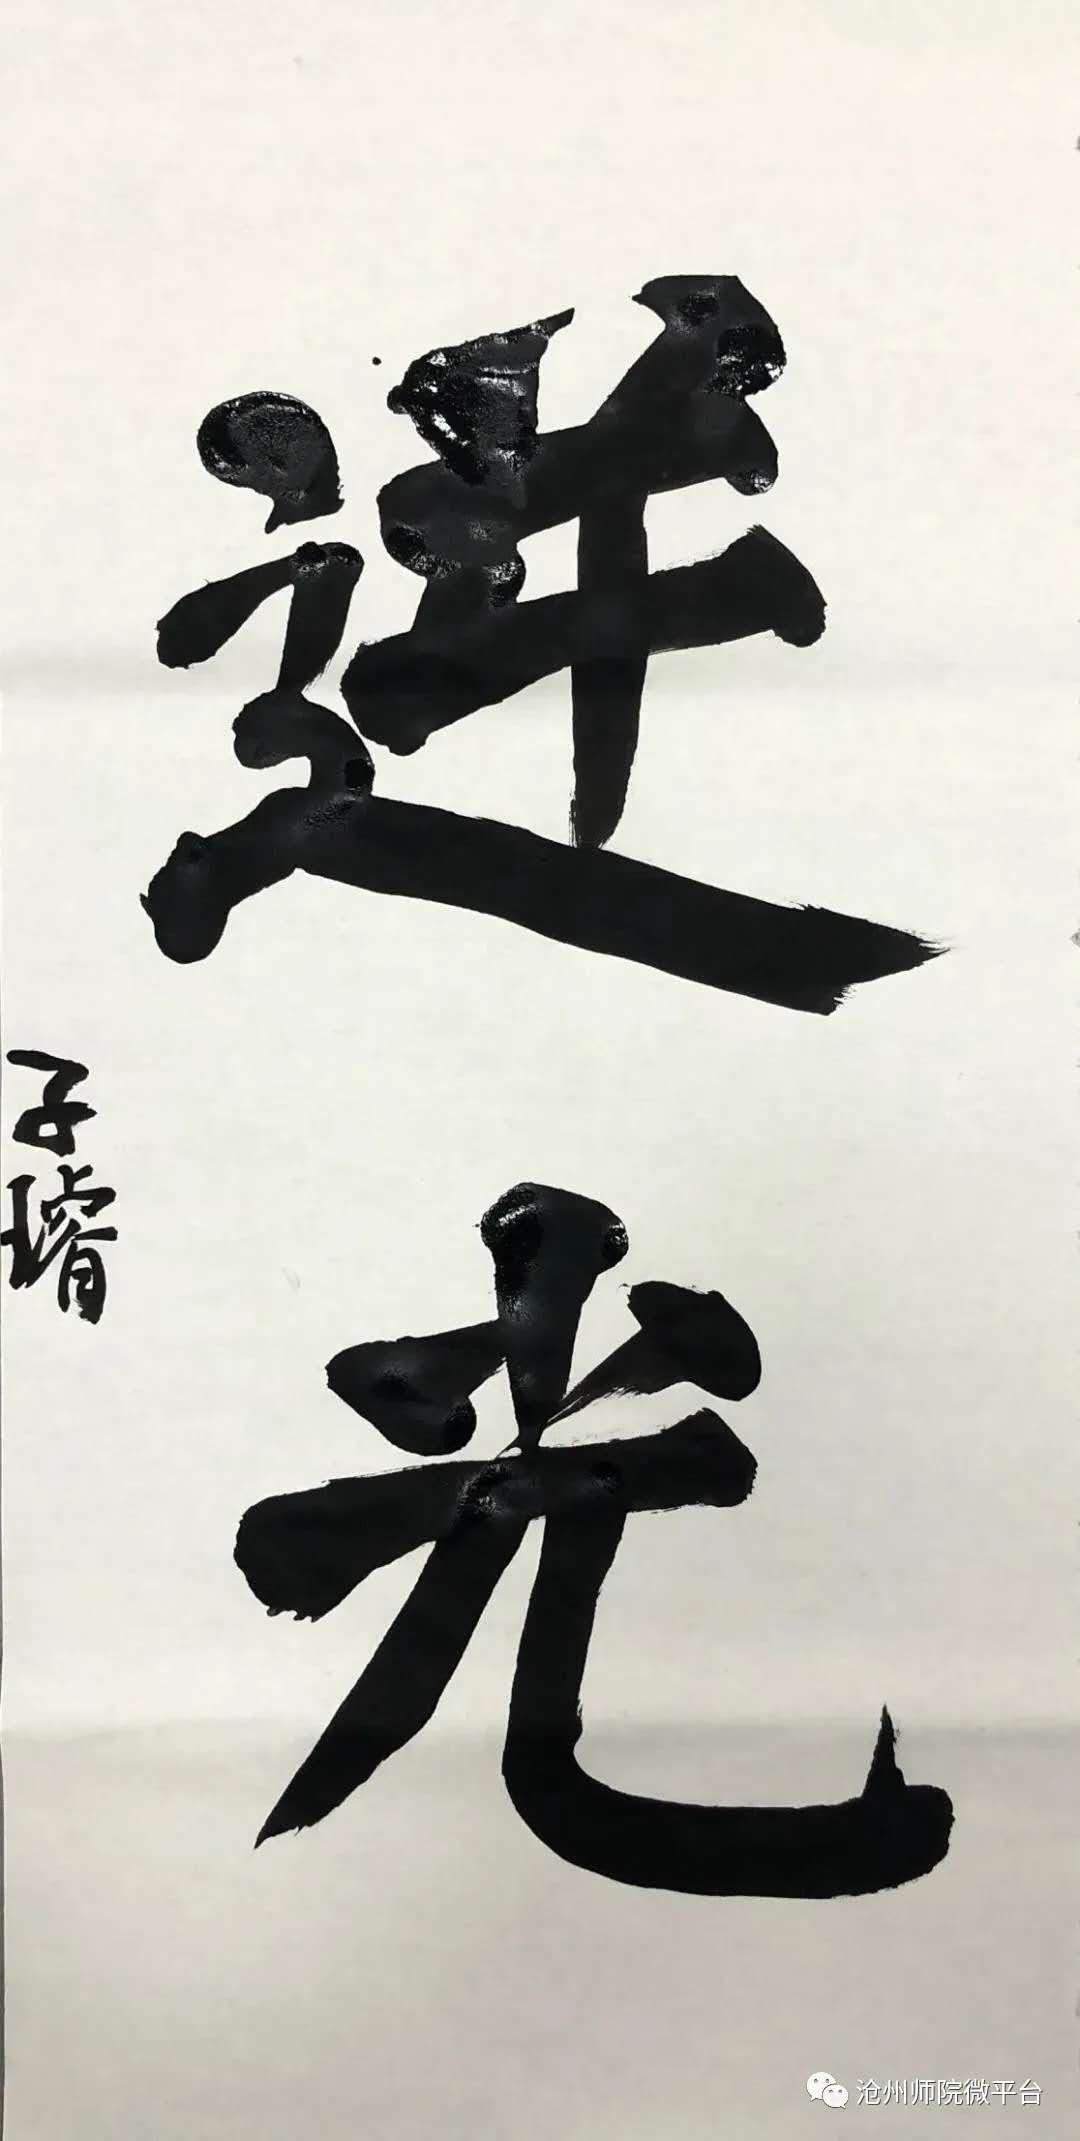 逆光
子璿
沧州师院微平台